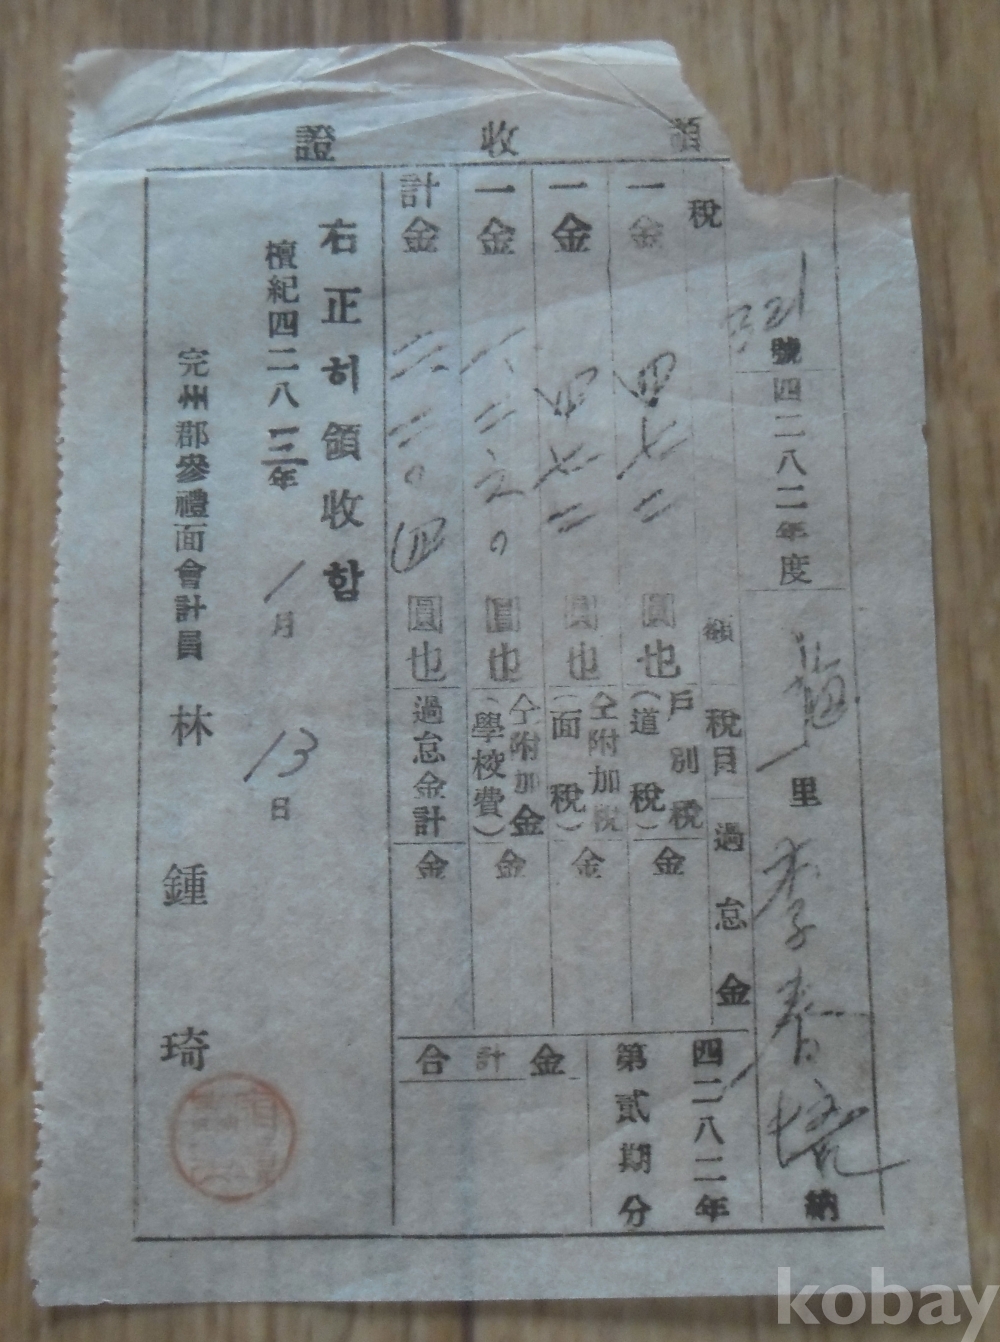 領收證
號 四二八二年度 里 李春 納
稅額 稅目 過怠金
一金 四七二 圓也 戶別稅(道稅) 金
一金 四七二 圓也 仝附加稅(面稅) 金
一金 圓也 仝附加金(學校費) 金
計金 圓也 過怠金計 金
四二八二年
第貳期分
合計金
右正히領收함
檀紀四二八三年 1月 13日
完州郡參禮面會計員 林鍾琦
kobay